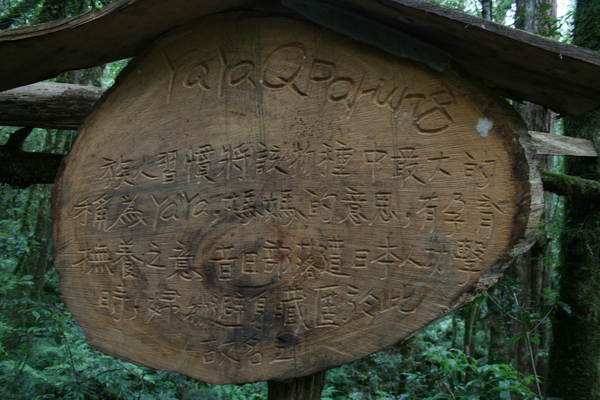 YaYa QParung
族人習慣將該物種中最大的
稱為YaYa,媽媽的意思,有孕育
撫養之意昔日部落遭日本人攻擊
時,婦幼避身藏匿於此
故名